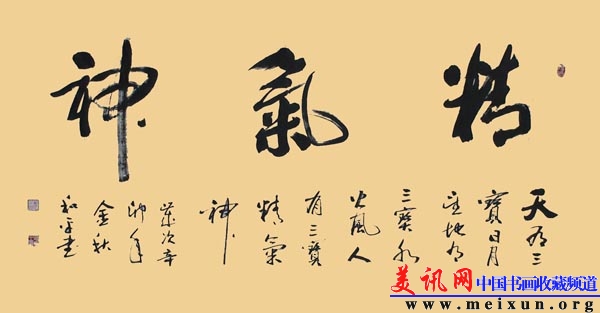 精氣神
天有三
寶日月
星地有
三寶水
火風人
有三寶
精氣
神
歲次辛
卯年
金秋
和平書
美讯网 中国书画收藏频道
www.meixun.org